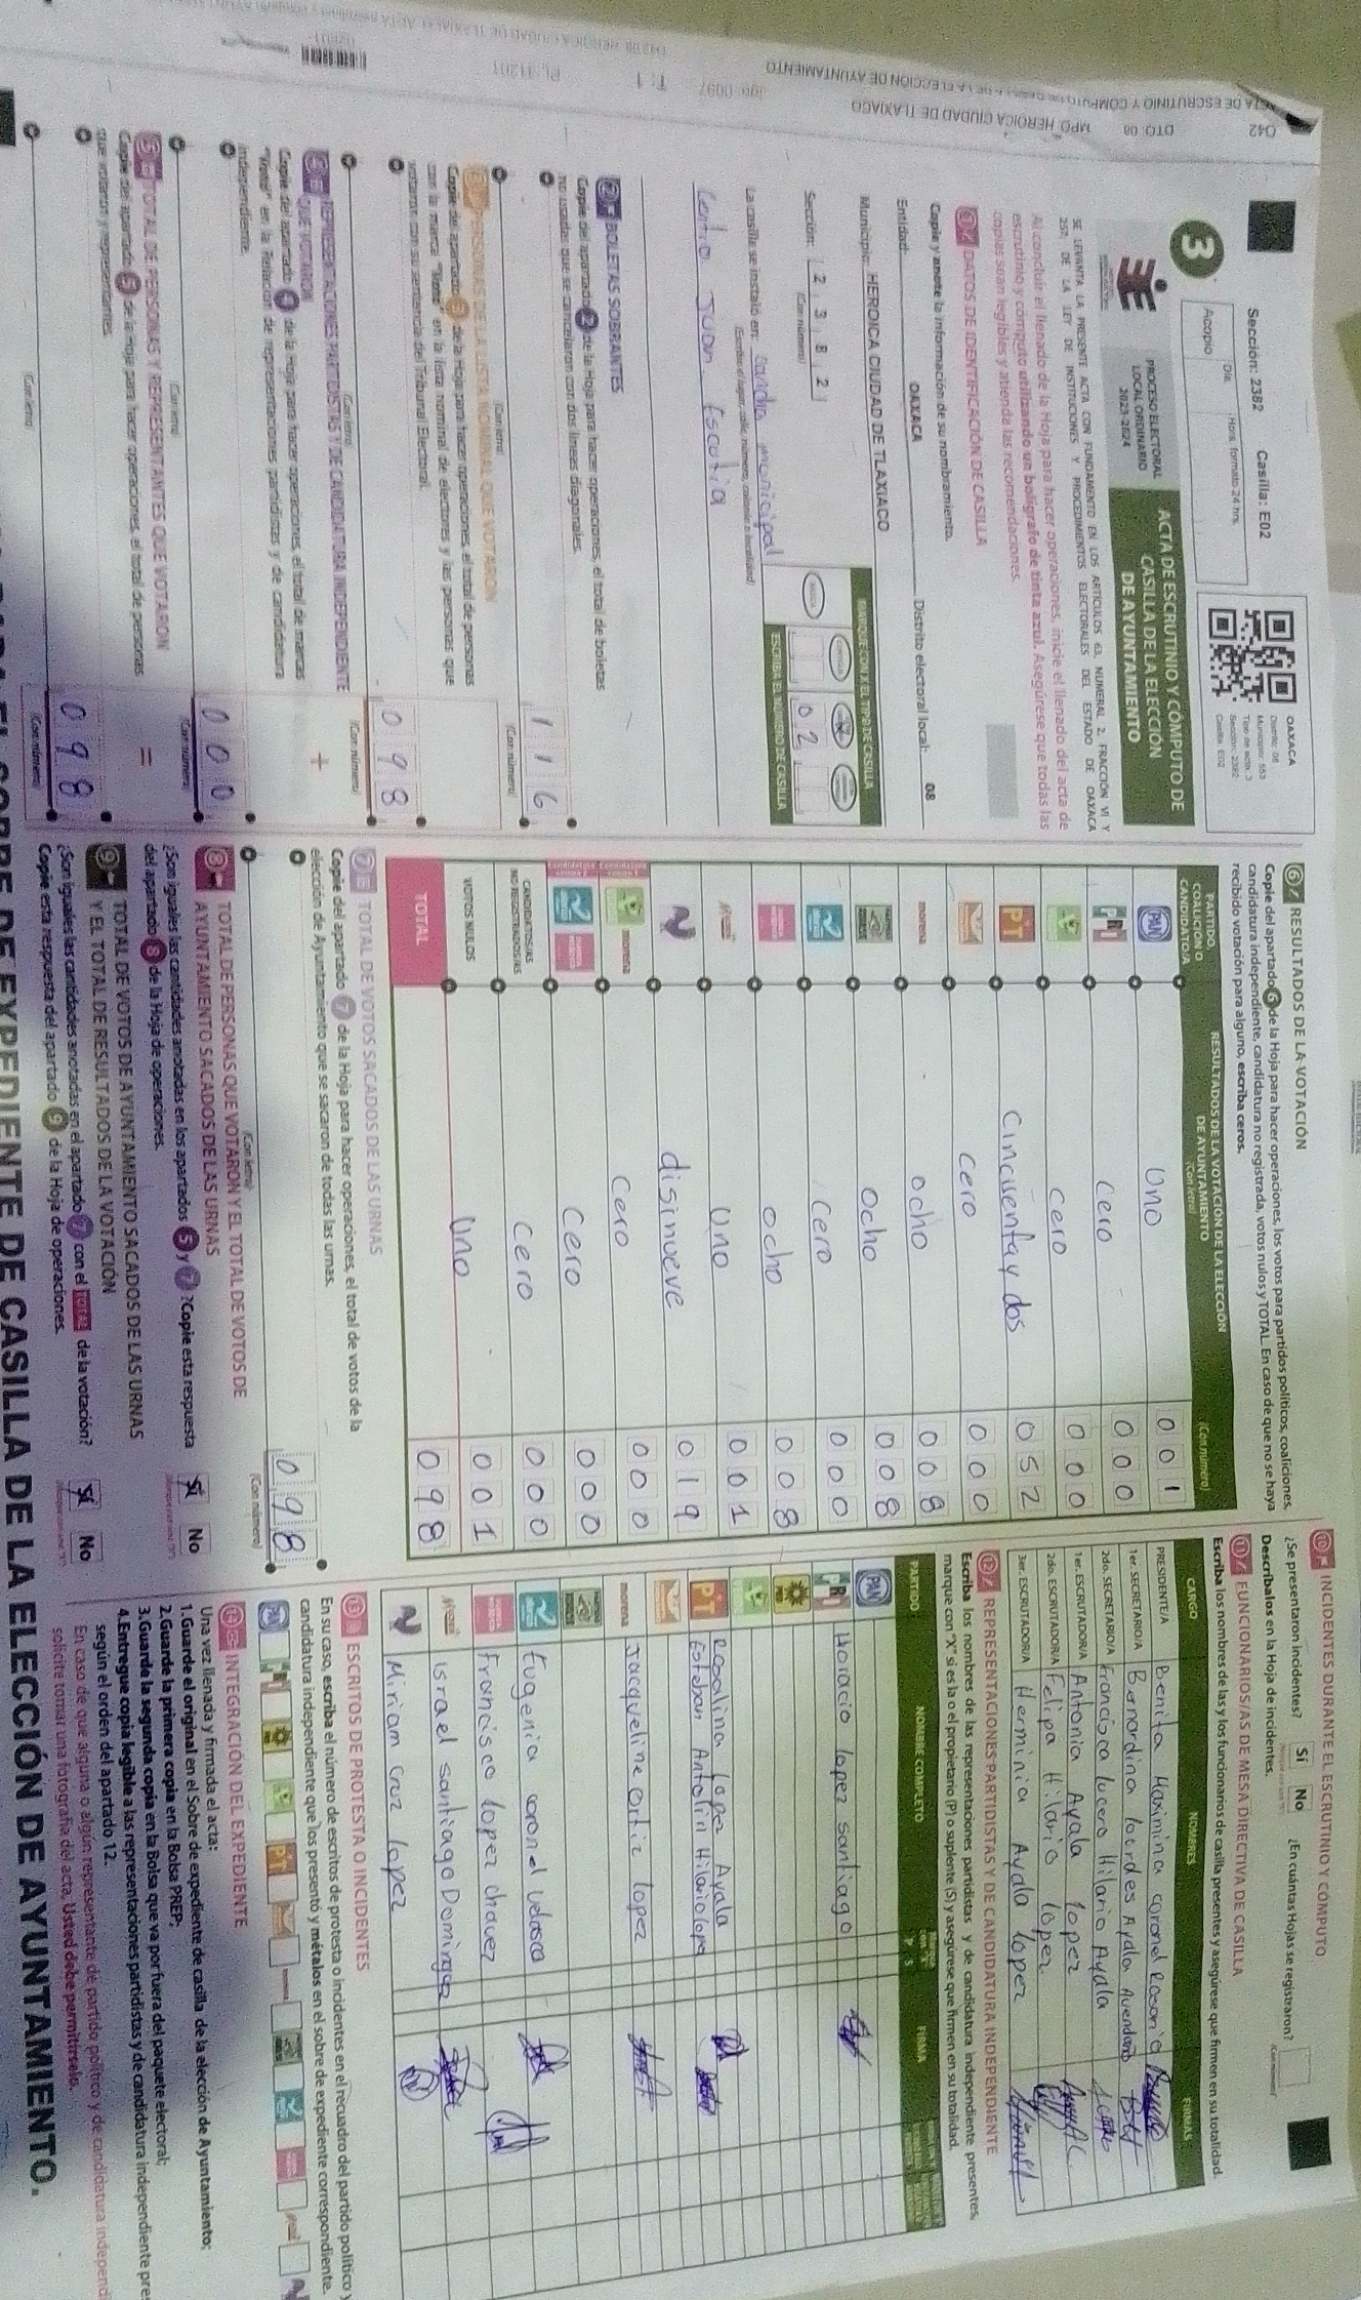 Sección: 2382 Casilla: E02
3
Acopio
Día
Hora formato 24 hrs.
OAXACA
Distrito: 08
Municipio: 553
Tipo de acta: 3
Sección: 2382
Casilla: E02
PROCESO ELECTORAL
LOCAL ORDINARIO
2023-2024
ACTA DE ESCRUTINIO Y CÓMPUTO DE
CASILLA DE LA ELECCIÓN
DE AYUNTAMIENTO
SE LEVANTA LA PRESENTE ACTA CON FUNDAMENTO EN LOS ARTÍCULOS 63, NUMERAL 2, FRACCIÓN VI Y
257, DE LA LEY DE INSTITUCIONES Y PROCEDIMIENTOS ELECTORALES DEL ESTADO DE OAXACA
Al concluir el llenado de la Hoja para hacer operaciones, inicie el llenado del acta de
escrutinio y cómputo utilizando un bolígrafo de tinta azul. Asegúrese que todas las
copias sean legibles y atienda las recomendaciones.
1 DATOS DE IDENTIFICACIÓN DE CASILLA
Copie y anote la información de su nombramiento.
Entidad: OAXACA Distrito electoral local: 08
Municipio: HEROICA CIUDAD DE TLAXIACO
Sección: 2 3 8 2
(Con número)
MARQUE CON X EL TIPO DE CASILLA
ESCRIBA EL NÚMERO DE CASILLA
0 2
La casilla se instaló en: Sandia monicipal
Centro Juan Escutia
2 BOLETAS SOBRANTES
Copie del apartado 2 de la Hoja para hacer operaciones, el total de boletas
no usadas que se cancelaron con dos líneas diagonales.
1 1 6
(Con letra) (Con número)
3 PERSONAS DE LA LISTA NOMINAL QUE VOTARON
Copie del apartado 3 de la Hoja para hacer operaciones, el total de personas
con la marca "Votó" en la lista nominal de electores y las personas que
votaron con su sentencia del Tribunal Electoral.
0 9 8
(Con letra) (Con número)
4 REPRESENTACIONES PARTIDISTAS Y DE CANDIDATURA INDEPENDIENTE
QUE VOTARON
Copie del apartado 4 de la Hoja para hacer operaciones, el total de marcas
"Votó" en la Relación de representaciones partidistas y de candidatura
independiente.
+
0 0 0
(Con letra) (Con número)
5 TOTAL DE PERSONAS Y REPRESENTANTES QUE VOTARON
Copie del apartado 5 de la Hoja para hacer operaciones, el total de personas
que votaron y representantes.
=
0 9 8
(Con letra) (Con número)
6 RESULTADOS DE LA VOTACIÓN
Copie del apartado 6 de la Hoja para hacer operaciones, los votos para partidos políticos, coaliciones,
candidatura independiente, candidatura no registrada, votos nulos y TOTAL. En caso de que no se haya
recibido votación para alguno, escriba ceros.
PARTIDO,
COALICIÓN O
CANDIDATO/A
RESULTADOS DE LA VOTACIÓN DE LA ELECCIÓN
DE AYUNTAMIENTO
(Con letra)
(Con número)
PAN Uno 0 0 1
PRI Cero 0 0 0
cero 0 0 0
PT Cincuenta y dos 0 5 2
cero 0 0 0
morena ocho 0 0 8
ocho 0 0 8
Cero 0 0 0
ocho 0 0 8
Uno 0 0 1
disinueve 0 1 9
morena Cero 0 0 0
Cero 0 0 0
CANDIDATOS/AS
NO REGISTRADOS/AS Cero 0 0 0
VOTOS NULOS Uno 0 0 1
TOTAL 0 9 8
7 TOTAL DE VOTOS SACADOS DE LAS URNAS
Copie del apartado 7 de la Hoja para hacer operaciones, el total de votos de la
elección de Ayuntamiento que se sacaron de todas las urnas.
0 9 8
(Con letra) (Con número)
8 TOTAL DE PERSONAS QUE VOTARON Y EL TOTAL DE VOTOS DE
AYUNTAMIENTO SACADOS DE LAS URNAS
¿Son iguales las cantidades anotadas en los apartados 5 y 7? Copie esta respuesta
del apartado 8 de la Hoja de operaciones.
Sí No
9 TOTAL DE VOTOS DE AYUNTAMIENTO SACADOS DE LAS URNAS
Y EL TOTAL DE RESULTADOS DE LA VOTACIÓN
¿Son iguales las cantidades anotadas en el apartado 7 con el TOTAL de la votación?
Copie esta respuesta del apartado 9 de la Hoja de operaciones.
Sí No
10 INCIDENTES DURANTE EL ESCRUTINIO Y CÓMPUTO
¿Se presentaron incidentes? Sí No ¿En cuántas Hojas se registraron?
Descríbalos en la Hoja de incidentes.
11 FUNCIONARIOS/AS DE MESA DIRECTIVA DE CASILLA
Escriba los nombres de las y los funcionarios de casilla presentes y asegúrese que firmen en su totalidad.
CARGO NOMBRES FIRMAS
PRESIDENTE/A Benita Maximina coronel
1er. SECRETARIO/A Bernardina lourdes Ayala Avendaño
2do. SECRETARIO/A Francisca lucero Hilario Ayala
1er. ESCRUTADOR/A Antonia Ayala lopez
2do. ESCRUTADOR/A Felipa Hilario lopez
3er. ESCRUTADOR/A Herminia Ayala lopez
12 REPRESENTACIONES PARTIDISTAS Y DE CANDIDATURA INDEPENDIENTE
Escriba los nombres de las representaciones partidistas y de candidatura independiente presentes,
marque con "X" si es la o el propietario (P) o suplente (S) y asegúrese que firmen en su totalidad.
PARTIDO NOMBRE COMPLETO P S FIRMA
PAN
PRI Horacio lopez santiago
PRD
PT Ecoalina lopez Ayala
Esteban Antolin Hilario lopez
morena Jacqueline ortiz lopez
Eugenia coronel velasco
Francisco loper chavez
israel santiago Dominguez
Miriam cruz lopez
13 ESCRITOS DE PROTESTA O INCIDENTES
En su caso, escriba el número de escritos de protesta o incidentes en el recuadro del partido político y
candidatura independiente que los presentó y métalos en el sobre de expediente correspondiente.
PAN PRI PRD PT
14 INTEGRACIÓN DEL EXPEDIENTE
Una vez llenada y firmada el acta:
1.Guarde el original en el Sobre de expediente de casilla de la elección de Ayuntamiento;
2.Guarde la primera copia en la Bolsa PREP;
3.Guarde la segunda copia en la Bolsa que va por fuera del paquete electoral;
4.Entregue copia legible a las representaciones partidistas y de candidatura independiente pre
según el orden del apartado 12.
En caso de que alguna o algún representante de partido político y de candidatura independ
solicite tomar una fotografía del acta, Usted debe permitírselo.
DE EXPEDIENTE DE CASILLA DE LA ELECCIÓN DE AYUNTAMIENTO.